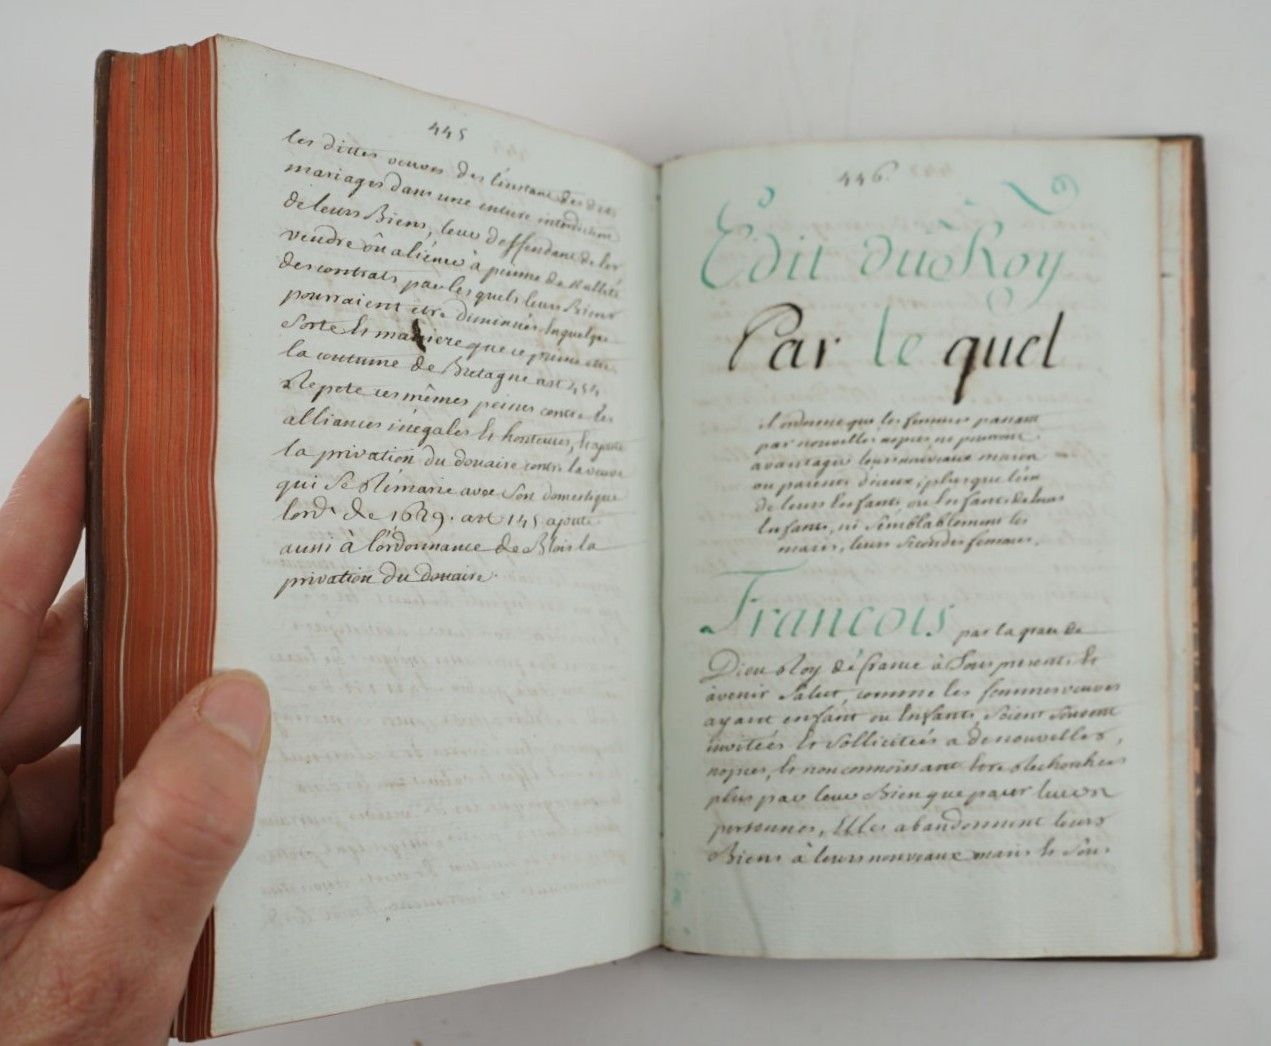 445
les dittes veuves des l'instant des dits
mariages dans une entiere interdiction
de leurs Biens, leur deffendant de les
vendre oû aliéner à peinne de Nullité
des contrats par lesquels leurs Biens
pourraient être diminués en quelque
sorte Et maniere que ce puisse etre
la coutume de Bretagne art 454.
Repete ces mêmes peines contre les
alliances inégales Et honteuses, Et ajoute
la privation du douaire contre la veuve
qui Se Rémarie avec Son domestique
l'ord.ce de 1629. art 145 ajoute
aussi à l'órdonnance de Blois la
privation du douaire.
446.
Edit du Roy
Par le quel
il ordonne que les femmes passant
par nouvelles nopces ne pouront
avantager leurs nouveaux maris
ou parents d'iceux, plus que l'un
de leurs Enfants ou Enfants de leurs
Enfants, ni Semblablement les
maris, leurs Secondes femmes.
Francois par la grace de
Dieu Roy dé france à Tous presents Et
àvenir Salut, comme les femmes veuves
ayant enfánt ou Enfants, Soient Souvent
invitées Et Sollicitées a de nouvelles
nopces, Et non connoissant Etre Recherchées
plus par leur Bien que pour leurs
personnes, Elles abandonnent leurs
Biens à leurs nouveaux maris Et Sous